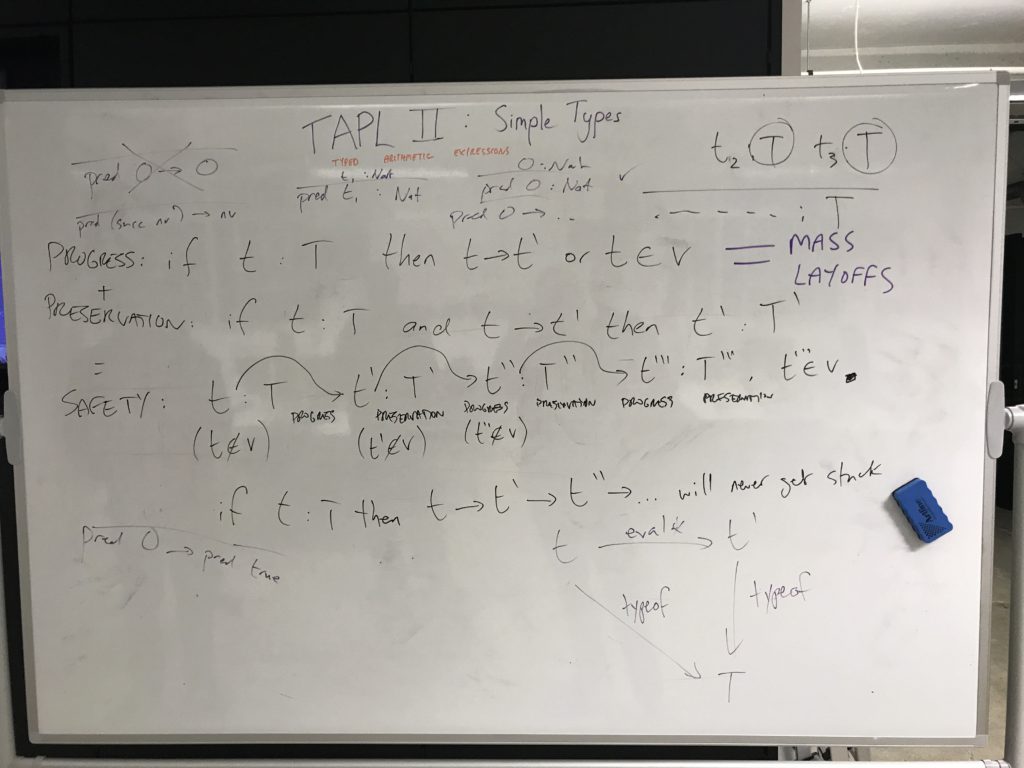 TAPL II : Simple Types
TYPED ARITHMETIC EXPRESSIONS
pred 0 → 0
pred (succ nv) → nv
t₁ : Nat
pred t₁ : Nat
0 : Nat
pred 0 : Nat ✓
pred 0 → ..
t₂ : T t₃ : T
. - - - - - : T
PROGRESS: if t : T then t → t' or t ∈ v = MASS LAYOFFS
+
PRESERVATION: if t : T and t → t' then t' : T'
=
SAFETY: t : T t' : T' t'' : T'' t''' : T''' , t''' ∈ v.
PROGRESS PRESERVATION PROGRESS PRESERVATION PROGRESS PRESERVATION
(t ∉ v) (t' ∉ v) (t'' ∉ v)
if t : T then t → t' → t'' → ... will never get stuck
pred 0 → pred true
t evalk t'
typeof typeof
T
Artline